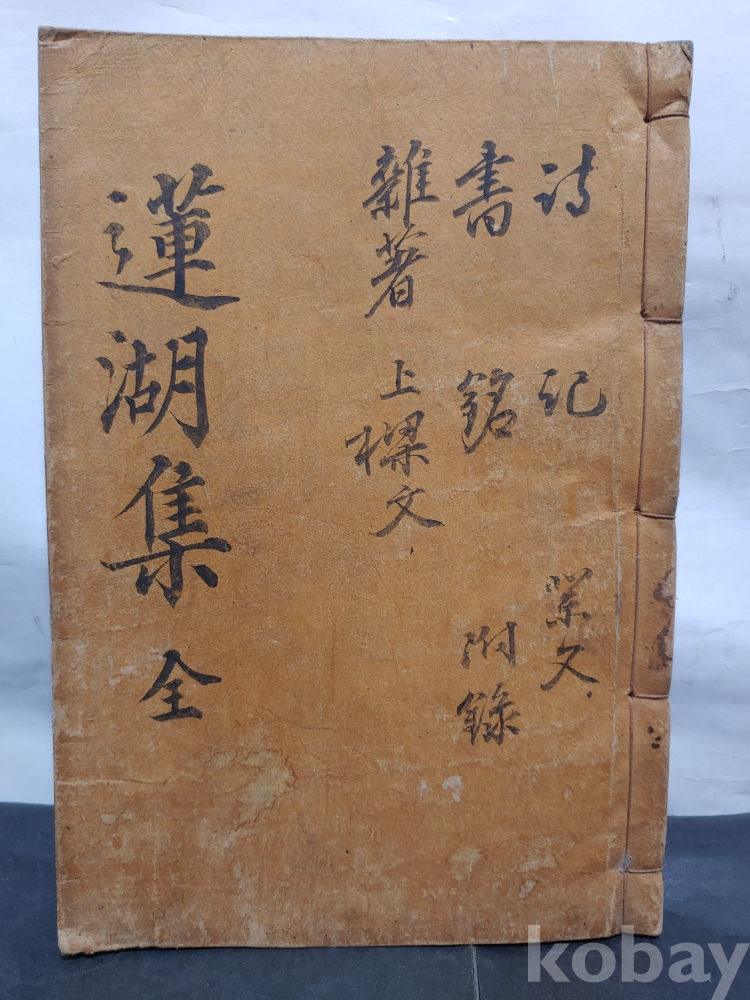 詩 記 祭文
書 銘 附錄
雜著 上樑文
蓮湖集 全
kobay